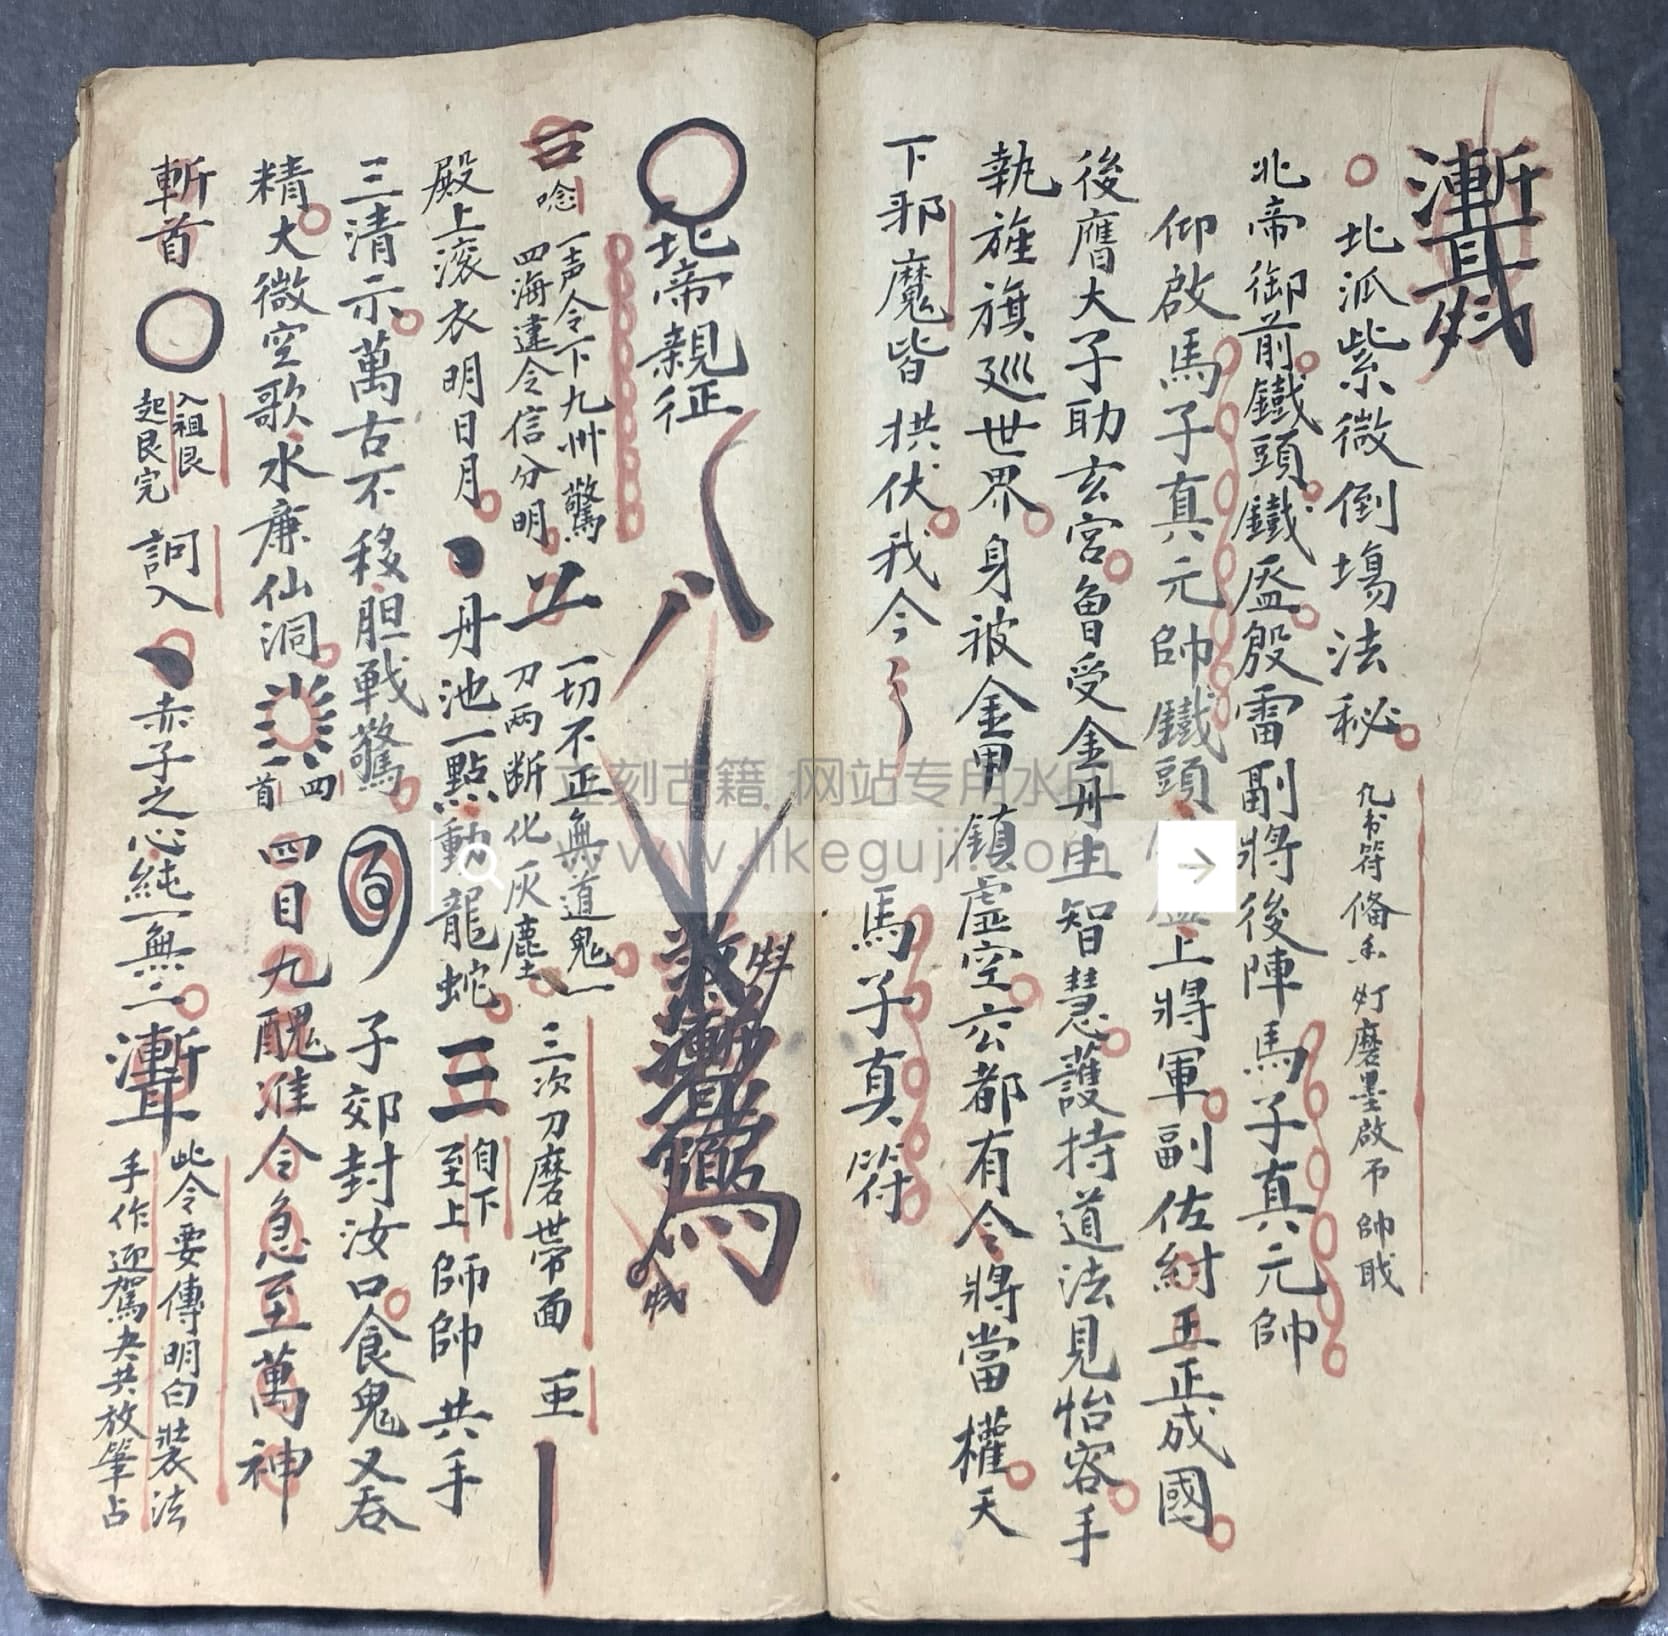 北派紫微倒塲法秘
凡书符條香灯磨墨啟币帥戝
北帝御前鐵頭鐵盔殷雷副將後陣馬子真元帥
仰啟馬子真元帥鐵頭上將軍副佐紂王正成國
後膺大子助玄宮魯受金丹生智慧護持道法見怡容手
執旌旗巡世界身被金甲鎮虛空六都有令將當權天
下邪魔皆拱伏我今
馬子真符
北帝親征
唸
一声令下九州驚
四海違令信分明
一切不正無道鬼一
刀兩断化灰塵
三次刀磨世帶面
殿上滚衣明日月
丹池一點動龍蛇
三
自下
至上
師帥共手
三清示萬古不移胆戰驚
子郊封汝口食鬼又吞
精大微空歌水廉仙洞
四首
四目九醜准令急至萬神
斬首
入祖艮
起艮完
詞入
赤子之心純一無二
此令要傳明白裝法
手作迎駕夬共放筆占
立刻古籍 网站专用水印
www.likeguji.com